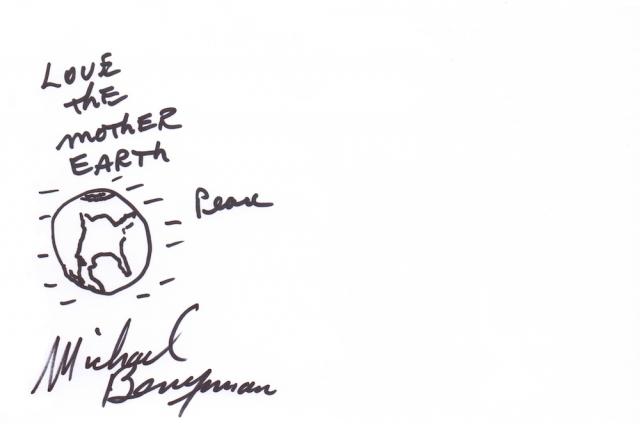 LOVE
thE
mothER
EARTh
Peace
Michael
Berryman